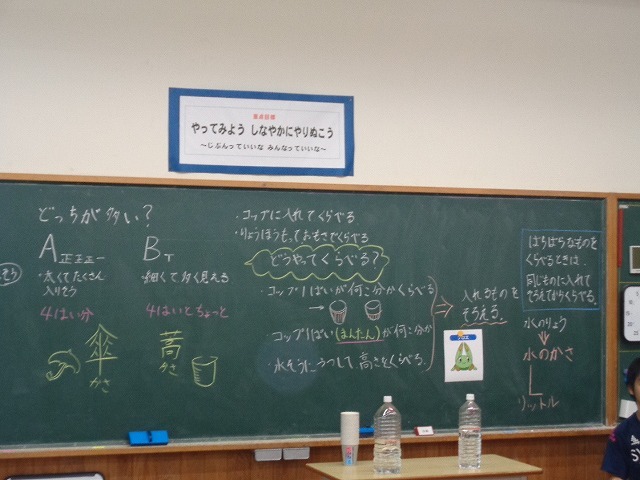 重点目標
やってみよう しなやかにやりぬこう
～じぶんっていいな みんなっていいな～
どっちが多い?
A 正正正一
・太くてたくさん
入りそう
4はい分
傘
かさ
B T
・細くて多く見える
4はいとちょっと
嵩
かさ
・コップに入れてくらべる
・りょうほうもっておもさでくらべる
どうやってくらべる?
・コップ1ぱいが何こ分かくらべる
→
・コップ1ぱい(まんたん)が何こ分か
・水そうにうつして高さをくらべる。
⇒ 入れるものを
そろえる。
ばらばらなものを
くらべるときは、
同じものに入れて
そろえてからくらべる。
水のりょう
水のかさ
リットル